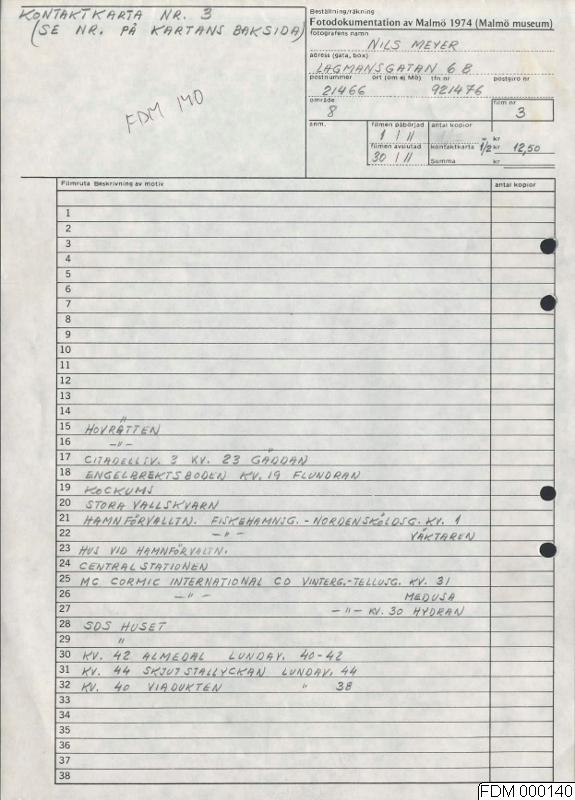 KONTAKTKARTA NR. 3
(SE NR. PÅ KARTANS BAKSIDA)
FDM 140
Beställning/räkning
Fotodokumentation av Malmö 1974 (Malmö museum)
fotografens namn
NILS MEYER
adress (gata, box)
LAGMANSGATAN 6 B
postnummer ort (om ej Mö) tfn nr postgiro nr
21466 921476
område film nr
8 3
anm. filmen påbörjad antal kopior
1 / 11 kr
filmen avslutad kontaktkarta 1/2 kr 12,50
30 / 11 Summa kr
Filmruta Beskrivning av motiv antal kopior
1
2
3
4
5
6
7
8
9
10
11
12
13
14
15 HOVRÄTTEN
16 -"-
17 CITADELLSV. 3 KV. 23 GÄDDAN
18 ENGELBREKTSBODEN KV. 19 FLUNDRAN
19 KOCKUMS
20 STORA VALLSKVARN
21 HAMNFÖRVALLTN. FISKEHAMNSG. - NORDENSKÖLDSG. KV. 1
22 -"- VÄKTAREN
23 HUS VID HAMNFÖRVALTN.
24 CENTRALSTATIONEN
25 MC CORMIC INTERNATIONAL CO VINTERG.-TELLUSG. KV. 31
26 -"- MEDUSA
27 -"- KV. 30 HYDRAN
28 SDS HUSET
29 "
30 KV. 42 ALMEDAL LUNDAV. 40-42
31 KV. 44 SKJUTSTALLYCKAN LUNDAV. 44
32 KV. 40 VIADUKTEN " 38
33
34
35
36
37
38
FDM 000140